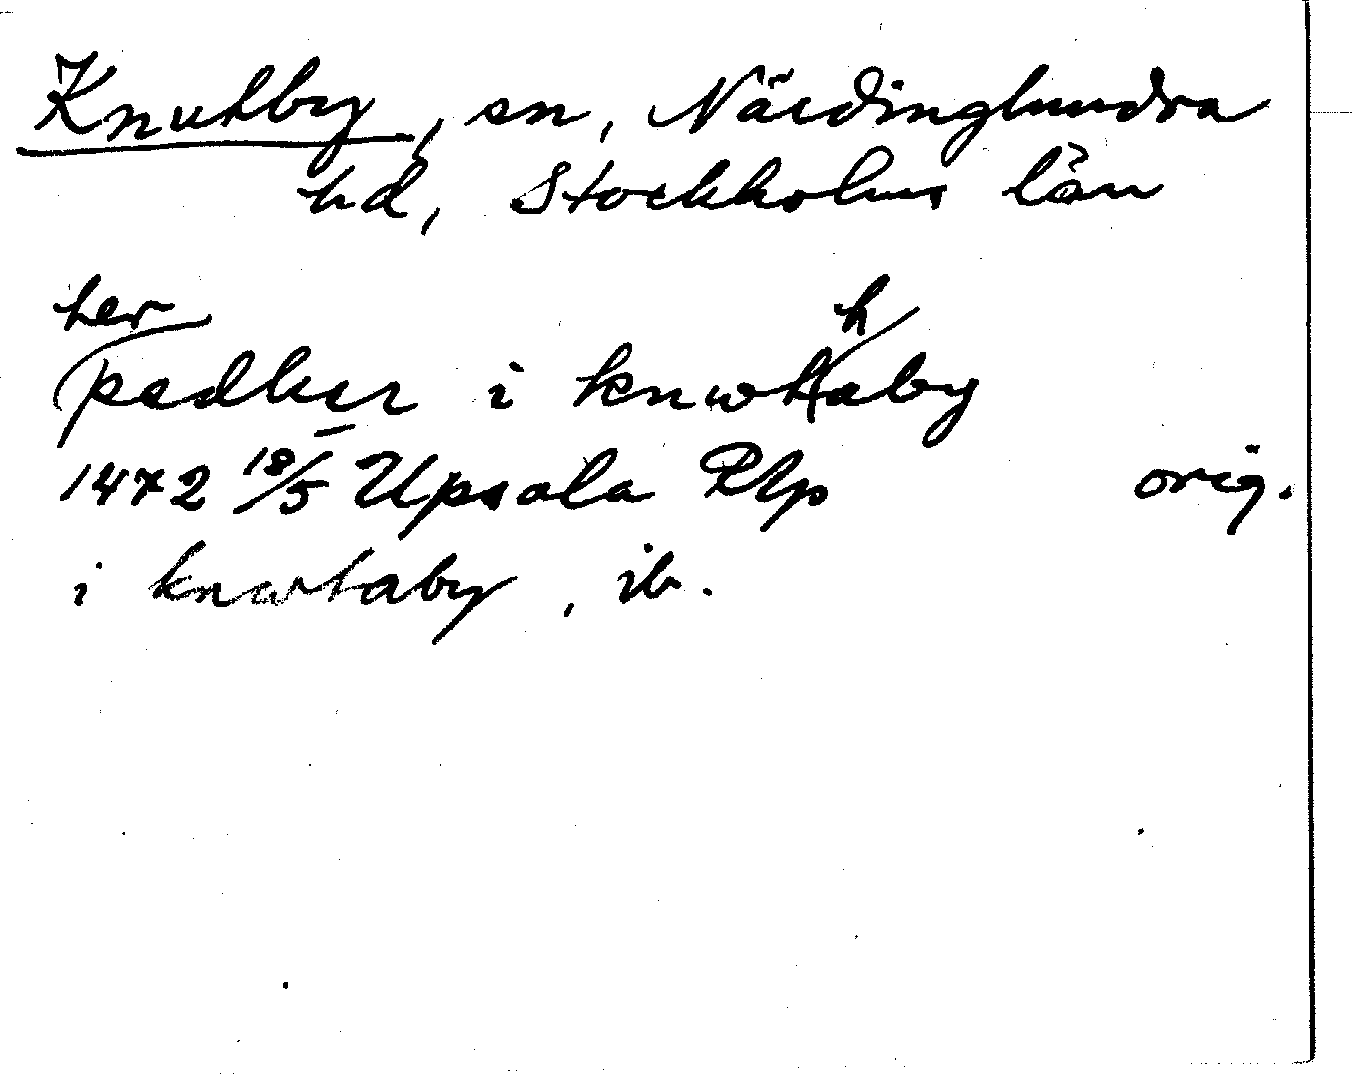 Knutby, sn, Närdinghundra
hd, Stockholms län
her
pedher i knwthaby
1472 18/5 Upsala Plp orig.
i knwtaby, ib.